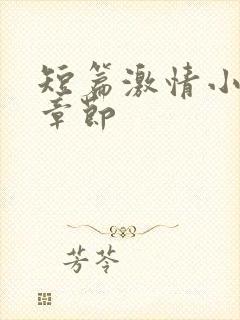 短篇激情小
章節
芳苓